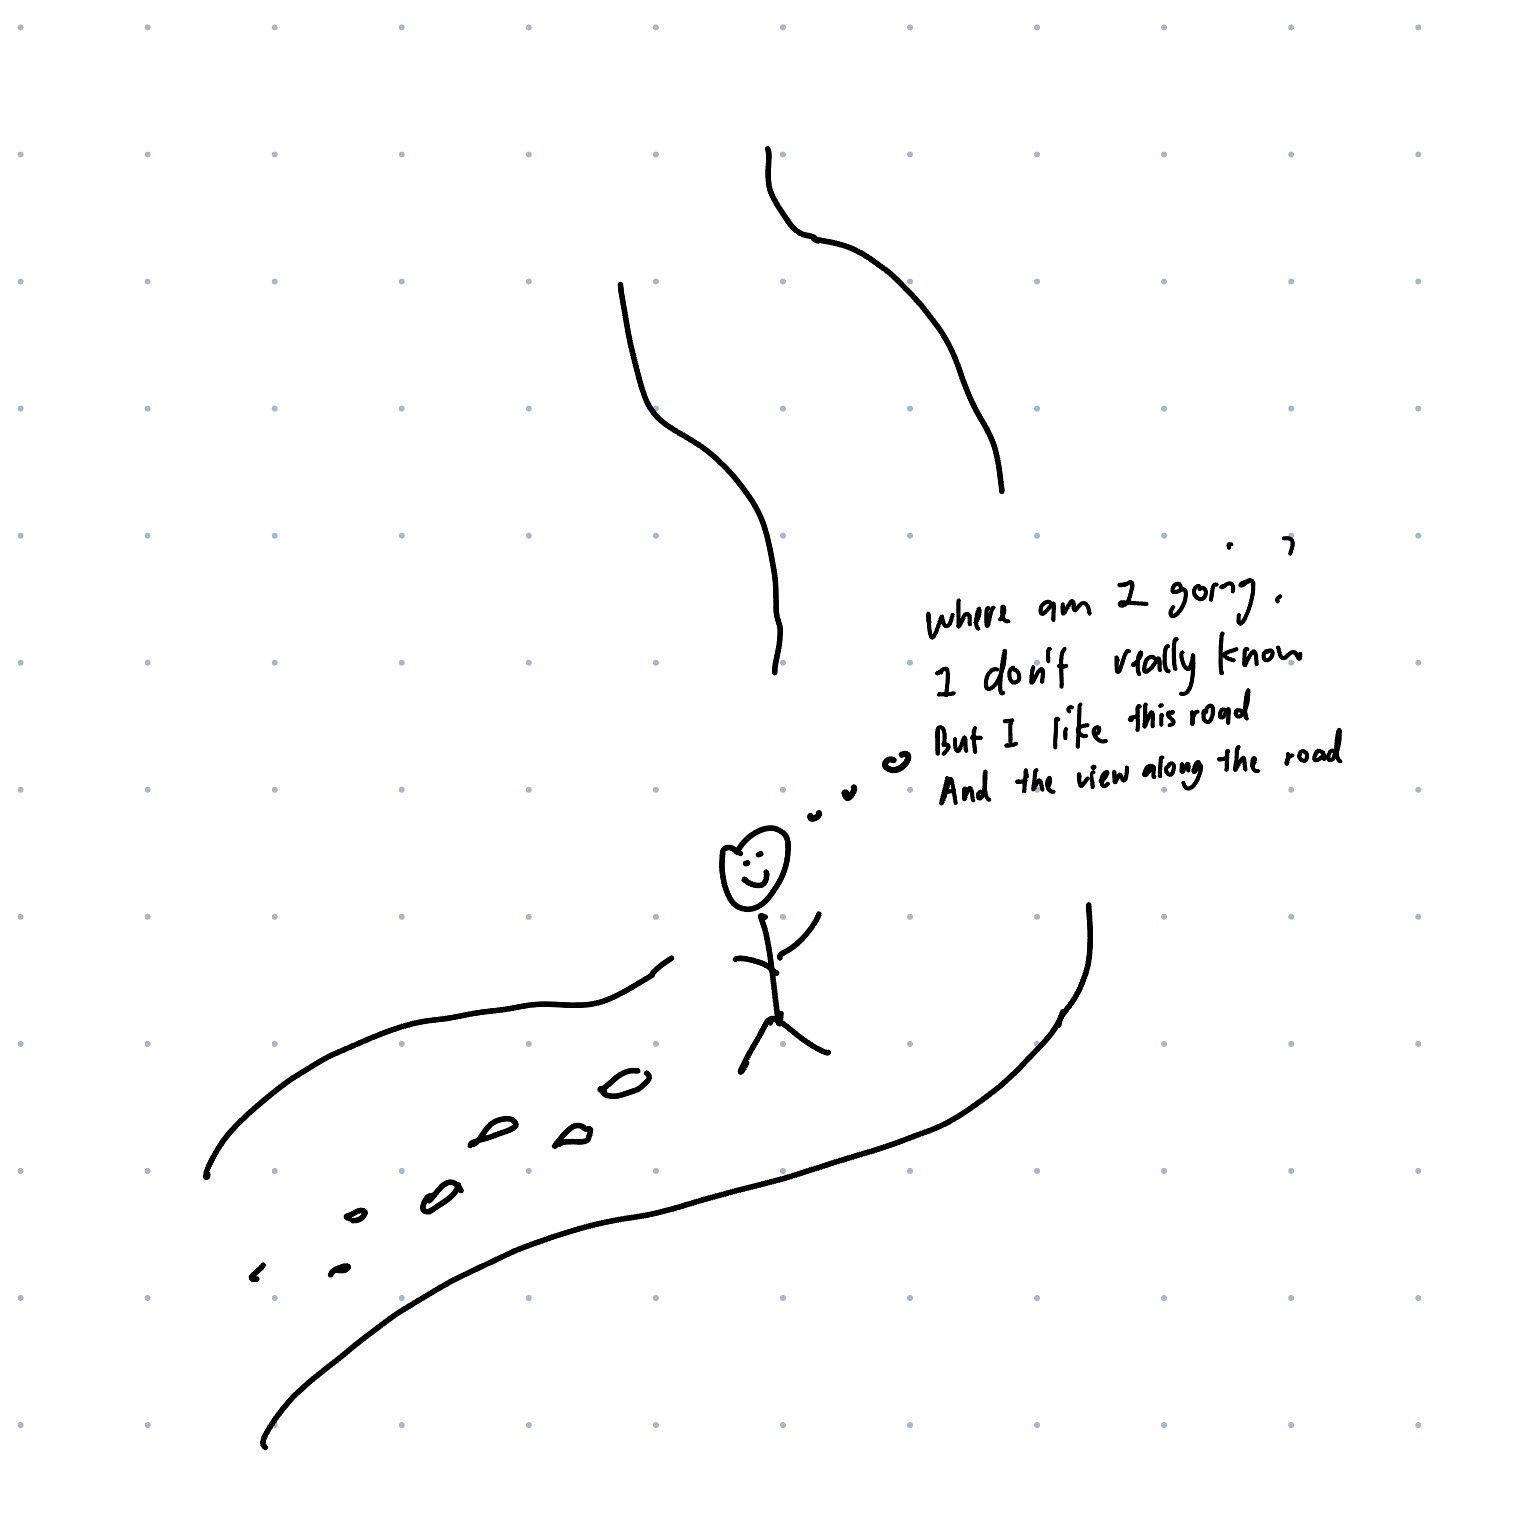 Where am I going?
I don't really know
But I like this road
And the view along the road